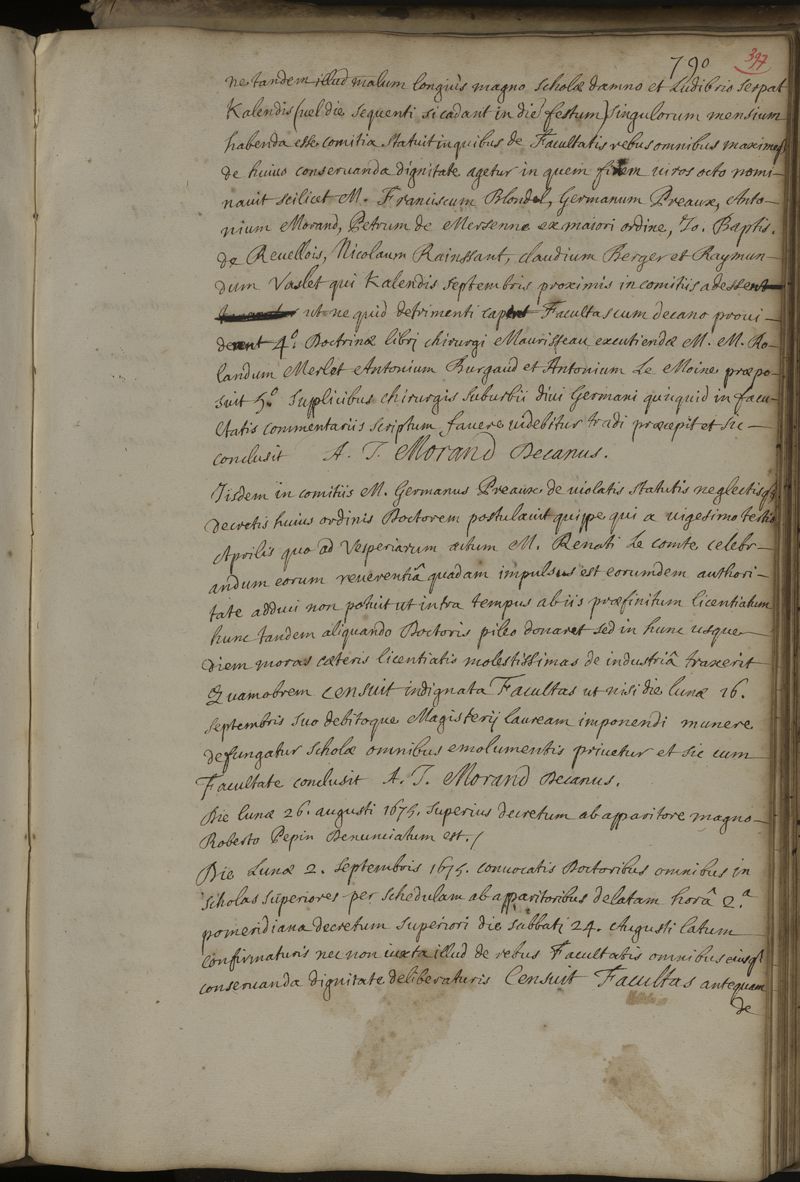 790
397
ne tandem illud malum longiùs magno scholæ damno et Ludibrio serpat
Kalendis (uel die sequenti si cadant in diē festum) singulorum mensium
habenda esse comitia statuit in quibus de Facultatis rebus omnibus maximeqȝ
de huius conseruanda dignitate agetur in quem finem uiros octo nomi-
nauit scilicet M. Franciscum Blondel, Germanum Preaux, Anto-
nium Morand, Petrum de Mersenne ex maiori ordine, Jo. Baptis.
de Reuellois, Nicolaum Rainssant, claudium Berger et Raymun-
dum Vaslet qui Kalendis septembris proximis in comitiis adessent
ut ne quid detrimenti Facultas cum decano proui-
derent 4.º Doctrinæ librj chirurgi Maurisseau excutiendæ M. M. Ro-
landum Merlet Antonium Burgaud et Antonium Le Moine præpo-
suit 5.º Supplicibus chirurgis suburbii diui Germani quicquid in facu-
ltatis commentariis scriptum fauere uidebitur tradi præcepit et sic
conclusit A. J. Morand Decanus.
Jisdem in comitiis M. Germanus Preaux de uiolatis statutis neglectisqȝ
decretis huius ordinis Doctorem postulauit quippe qui a uigesimo tertio
Aprilis quo ad Vesperiarum actum M. Renati Le comte celebr-
andum eorum reuerentiâ quadam impulsus est eorumdem authori-
tate adduci non potuit ut intra tempus ab iis præfinitum licentiatum
hunc tandem aliquando Doctoris pileo donaret sed in hunc usque
diem moras cæteris licentiatis molestissimas de industriâ traxerit
Quamobrem censuit indignata Facultas ut nisi die lunæ 16.
septembris suo debitoque Magisterij lauream imponendi munere
defungatur scholæ omnibus emolumentis priuetur et sic cum
Facultate conclusit A. J. Morand Decanus.
Die lunæ 26. augusti 1675. superius decretum ab apparitore magno
Roberto Pepin Denunciatum est. /
Die Lunæ 2. Septembris 1675. conuocatis Doctoribus omnibus in
scholas superiores per schedulam ab apparitoribus delatam horâ 2.ª
pomeridiana decretum superiori die sabbatj 24. Augusti latum
confirmaturis nec non iuxta illud de rebus Facultatis omnibus eiusqȝ
conseruanda dignitate deliberaturis Censuit Facultas antequam
de